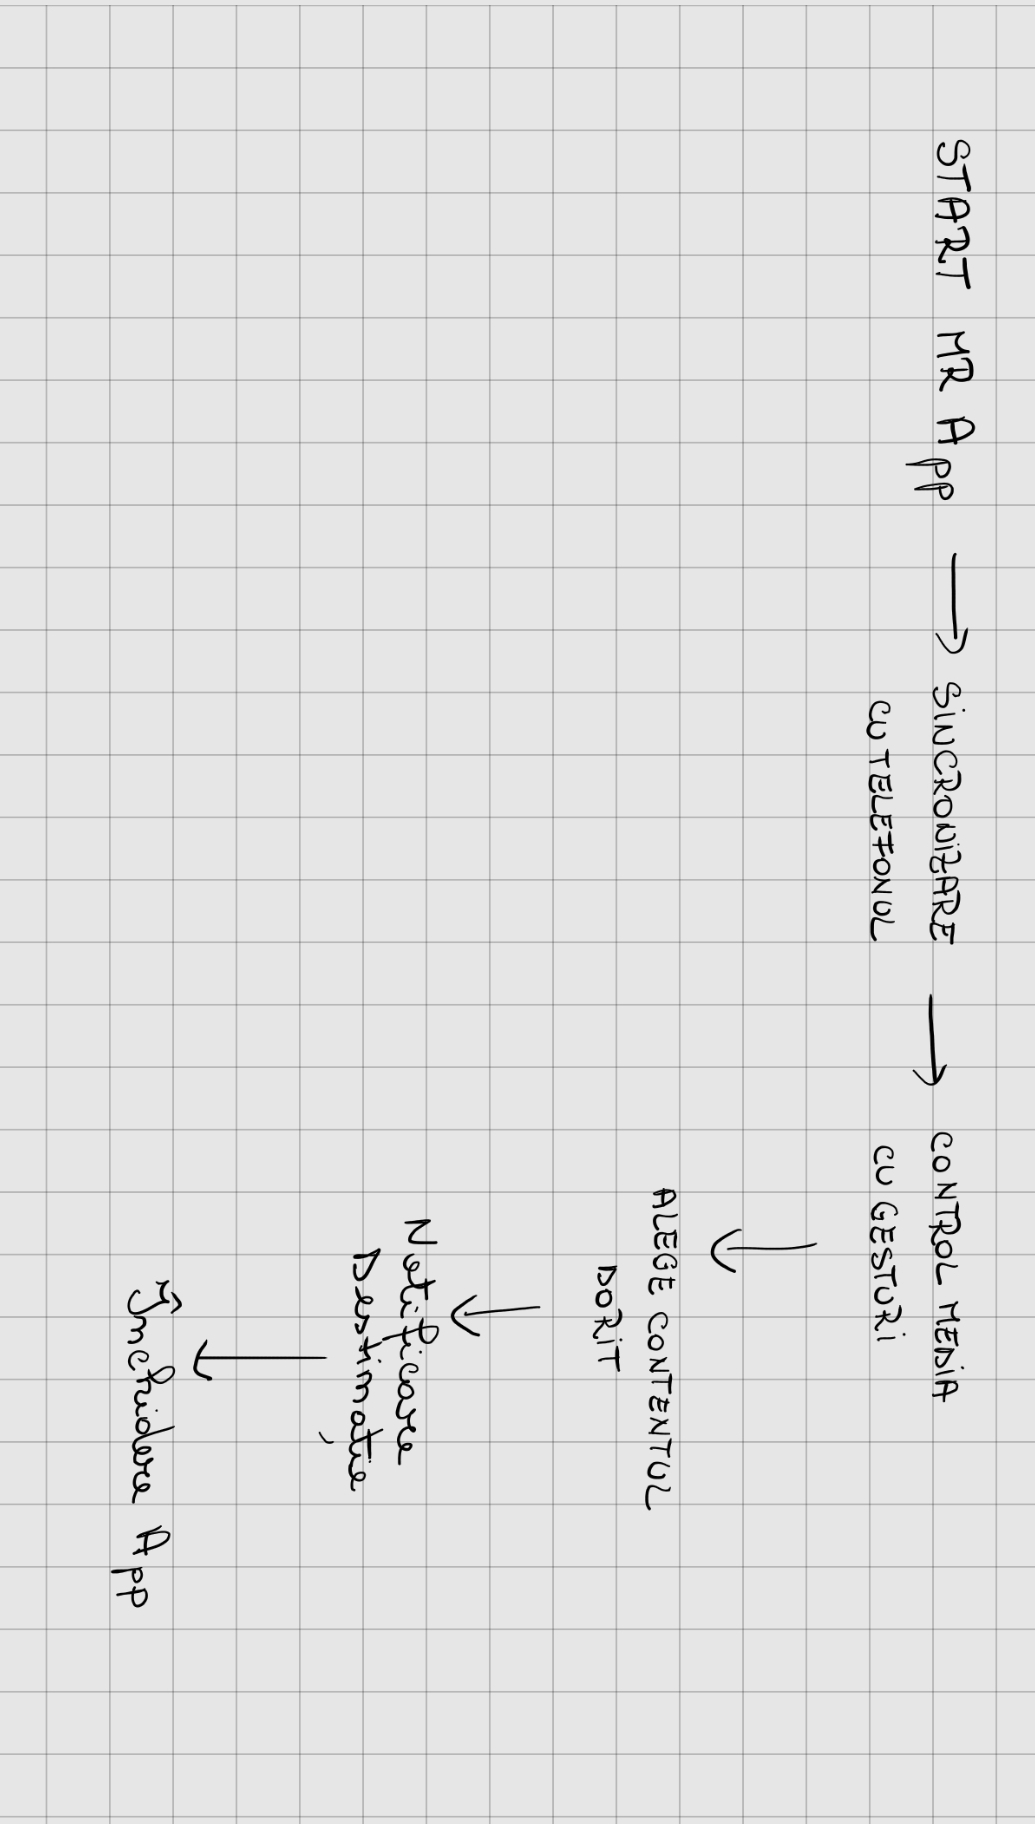 START MR App
SINCRONIZARE
CU TELEFONUL
CONTROL MEDIA
CU GESTURI
ALEGE CONTENTUL
DORIT
Notificare
Destinație
Închidere App